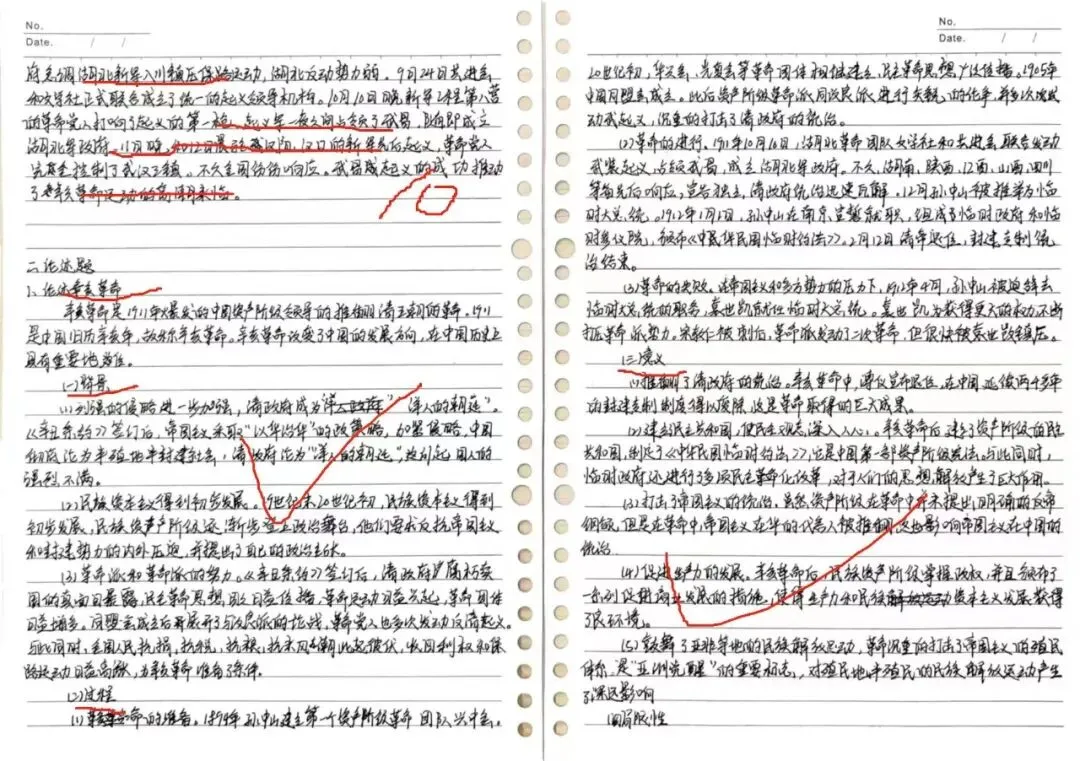 No.
Date. / /
府急调湖北新军入川镇压保路运动，湖北反动势力弱。9月24日共进会
和文学社正式联合成立了统一的起义领导机构。10月10日晚，新军工程第八营
的革命党人打响了起义的第一枪，起义军一夜之间占领了武昌，随即成立
湖北军政府。11日晚，和12日晨汉阳、汉口的新军先后起义，革命党人
完全控制了武汉三镇。不久全国纷纷响应。武昌起义的成功推动
了辛亥革命运动的高潮来临。
10
二、论述题
1、论述辛亥革命
辛亥革命是1911年爆发的中国资产阶级领导的推翻清王朝的革命。1911
是中国旧历辛亥年，故称辛亥革命。辛亥革命改变了中国的发展方向，在中国历史上
具有重要地位。
(一)背景
(1)列强的侵略进一步加强，清政府成为"洋人的朝廷"。
《辛丑条约》签订后，帝国主义采取"以华治华"的政策略，加紧侵略，中国
彻底沦为半殖地半封建社会，清政府沦为"洋人的朝廷"，这引起国人的
强烈不满。
(2)民族资本主义得到初步发展。19世纪末20世纪初，民族资本主义得到
初步发展，民族资产阶级逐渐步登上政治舞台，他们要求反抗帝国主义
和封建势力的内外压迫，并提出了自己的政治主张。
(3)革命派和革命派的努力。《辛丑条约》签订后，清政府腐朽卖
国的真面目暴露，民主革命思想日益传播，革命运动日益兴起，革命团体
日益增多。同盟会成立后开展了与改良派的论战，革命党人也多次发动反清起义。
与此同时，全国人民抗捐、抗税、抗租、抗木风潮此起彼伏，收回利权和保
路运动日益高涨，为辛亥革命准备了条件。
(二)过程
(1)革命的准备。1894年孙中山建立第一个资产阶级革命团队兴中会。
No.
Date. / /
20世纪初，华兴会，光复会等革命团体相继建立，民主革命思想广泛传播。1905年
中国同盟会成立。此后资产阶级革命派同改良派进行失败的论争，并多次发
动武起义，沉重的打击了清政府的统治。
(2)革命的进行。1911年10月10日，湖北革命团队文学社和共进会联合发动
武装起义，占领武昌，成立湖北军政府。不久，湖南，陕西，江西，山西，四川
等省先后响应，宣告独立，清政府统治迅速瓦解。12月孙中山被推举为临
时大总统。1912年1月1日，孙中山在南京宣誓就职，组成了临时政府和临
时参议院，颁布《中华民国临时约法》。2月12日清帝退位，封建专制统
治结束。
(3)革命的失败。在帝国主义和各方势力的压力下，1912年4月，孙中山被迫辞去
临时大总统的职务，袁世凯就任临时大总统。袁世凯为获得更大的权力不断
打压革命派势力。宋教仁被刺后，革命派发动了二次革命，但很快被袁世凯镇压。
(三)意义
(1)推翻了清政府的统治。辛亥革命中，溥仪宣布退位。在中国延续两千多年
的封建专制制度得以废除，这是革命取得的巨大成果。
(2)建立民主共和国，使民主观念深入人心。辛亥革命后建立了资产阶级的民主
共和国，制定了《中华民国临时约法》，它是中国第一部资产阶级宪法。与此同时，
临时政府还进行了多项民主革命化改革，对于人们的思想解放产生了巨大作用。
(3)打击了帝国主义的统治。虽然资产阶级在革命中并未提出明确的反帝
纲领，但是在革命中，帝国主义在华的代言人被推翻，这也影响帝国主义在中国的
统治。
(4)促进生产力的发展。辛亥革命后，民族资产阶级掌握政权，并且颁布了
一系列促进商业发展的措施，使得生产力和民族资本主义发展获得
了良环境。
(5)鼓舞了亚非等地的民族解放运动，革命沉重的打击了帝国主义的殖民
体系，是"亚洲觉醒"的重要标志，对殖民地半殖民的民族解放运动产生
了深远影响
四局限性